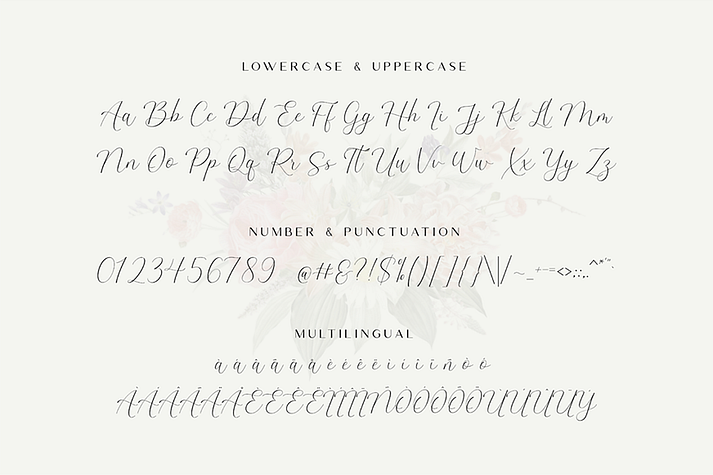 LOWERCASE & UPPERCASE
Aa Bb Cc Dd Ee Ff Gg Hh Ii Jj Kk Ll Mm
Nn Oo Pp Qq Rr Ss Tt Uu Vv Ww Xx Yy Zz
NUMBER & PUNCTUATION
0123456789 @#&?!$%()[]{}\|/~_+-=<>:;,.^*'"
MULTILINGUAL
àáâãäåèéêëìíîïñòó
ÀÁÂÃÄÅÈÉÊËÌÍÎÏÑÒÓÔÕÖÙÚÛÜÝ